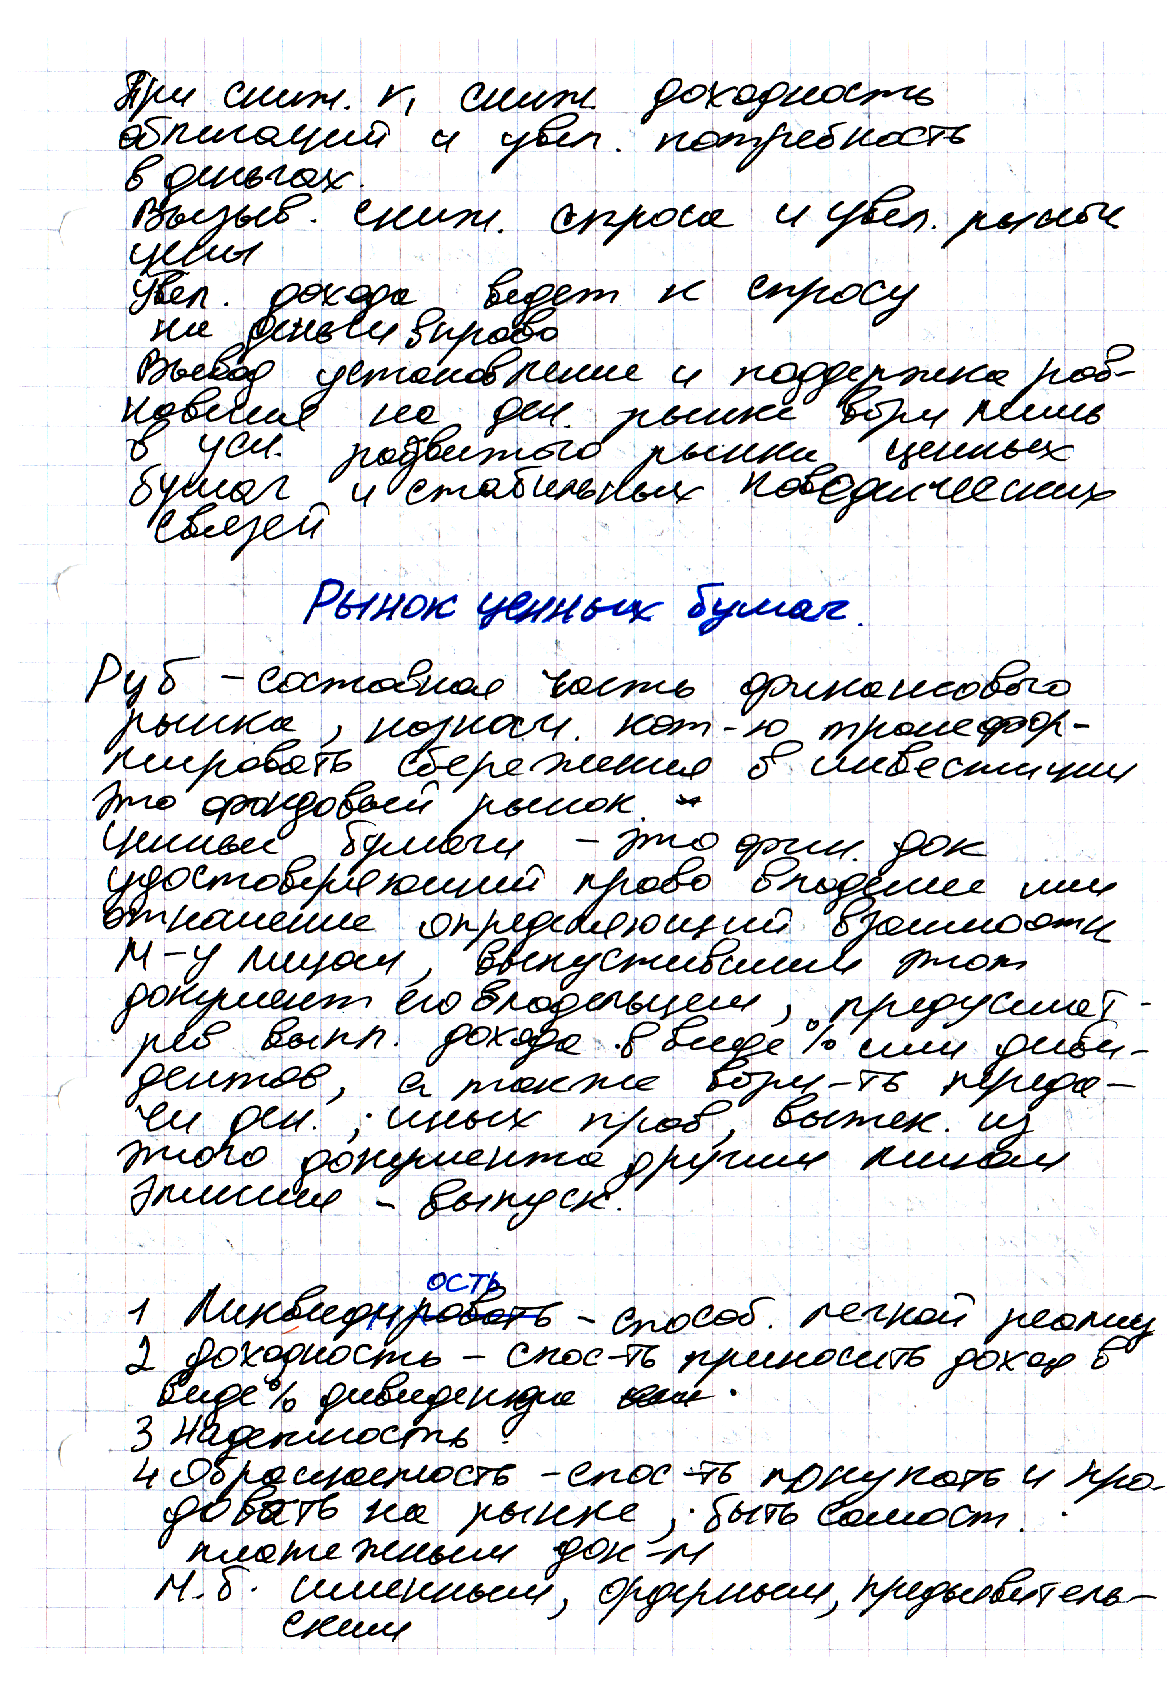 При сниж. r, сниж. доходность
облигаций и увел. потребность
в деньгах.
Вызыв. сниж. спроса и увел. рыноч
цены
Увел. дохода ведет к спросу
на деньги вправо
Вывод установление и поддержка рав-
новесия на ден. рынке возм лишь
в усл. развитого рынка ценных
бумаг и стабильных поведенческих
связей
Рынок ценных бумаг.
Рцб – составная часть финансового
рынка, назнач. кот-ю трансфор-
мировать сбережения в инвестиции
это фондовый рынок.
Ценные бумаги – это фин. док
удостоверяющий право владение или
отношение определяющий взаимоотн
м-у лицам, выпустившим этот
документ его владельцем, предусмат-
рев выпл. дохода в виде % или диви-
дентов, а также возм-ть переда-
чи ден. , иных прав, вытек. из
этого документа другим лицам
Эмиссия – выпуск.
1 Ликвидность – способ. легкой реализ
2 Доходность – спос-ть приносить доход в
виде % дивиденда
3 Надежность
4 Обращаемость – спос-ть покупать и про-
давать на рынке, быть самост.
платежным док-м
М.б. именным, ордерным, предьявитель-
ским